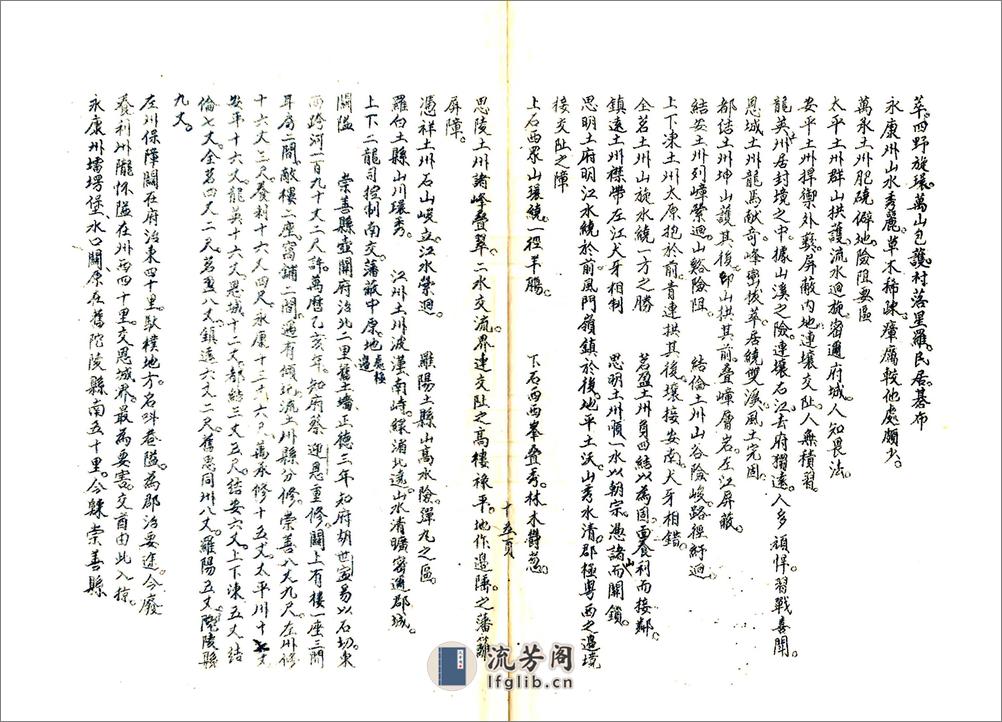 萃。四野旋環。萬山包護。村落星羅。民居碁布
永康州山水秀麗。草木稀疎。瘴厲較他處頗少。
萬承土州肥磽僻地。險阻要區
太平土州群山拱護。流水迴旋。密邇府城。人知畏法。
安平土州捍禦外藝。屏敝內地。連壤交趾。人無積習。
龍英州居封境之中。據山溪之險。連壤右江。去府獨遠。人多頑悍。習戰喜鬪。
恩城土州龍馬献奇。峰巒拔萃。居繞雙溪。風土完固。
都結土州坤山護其後。印山拱其前。叠嶂層岩。左江屏蔽。
結安土州列嶂縈迴。山谿險阻。 結倫土州山谷險峻。路徑紆迴
上下凍土州太原抱於前。青連拱其後。壤接安南。犬牙相錯。
全茗土州山旋水繞。一方之勝 茗盈土州負四結以為固。面養利而接鄰。
鎮遠土州襟帶左江。犬牙相制 思明土州順一水以朝宗。憑諸山而關鎖。
思明土府明江水繞於前。風門嶺鎮於後。地平土沃。山秀水清。郡極粵西之邊境
接交趾之障
上石西眾山環繞。一徑羊腸。 下石西西峯叠秀。林木欝葱。
十五頁
思陵土州諸峰叠翠。二水交流。界連交趾之髙樓祿平。地作邊陲之藩籬
屏障。
憑祥土州石山峻立。江水縈迴。 羅陽土縣山髙水險。彈九之區。
羅白土縣山川環秀。 江州土州波漢南峙。綠浦北遶。山水清曠。密邇郡城。
上下二龍司控制南交。藩蔽中原。地處極邊
關隘 崇善縣壺關府治北二里。舊土墻。正德三年知府胡世寧易以石。切東
西跨河一百九十丈二尺許。萬曆乙亥年。知府蔡迎恩重修。關上有樓一座三間
耳房二間。敵樓二座。窩鋪二間。遇有傾圮。流土州縣分修。崇善八丈九尺。左州修
十六丈三尺。養利十六丈四尺。永康十三丈六尺。萬承修十五丈。太平州十六丈
安平十六丈。龍英十六丈。恩城十二丈。都結三丈五尺。結安六丈。上下凍五丈。結
倫七丈。全茗四尺二尺。茗盈八丈。鎮遠六丈二尺。舊思同州八丈。羅陽五丈。陀陵縣
九丈。
左州保障關在府治東四十里。馱樸地方。名叫卷隘。為郡治要途。今廢
養利州隴懷隘在州西四十里。交恩城界。最為要害。交酋由此入掠。
永康州墦塄堡。水口關。原在舊陀陵縣南五十里。今隸崇善縣
流芳阁
lfglib.cn